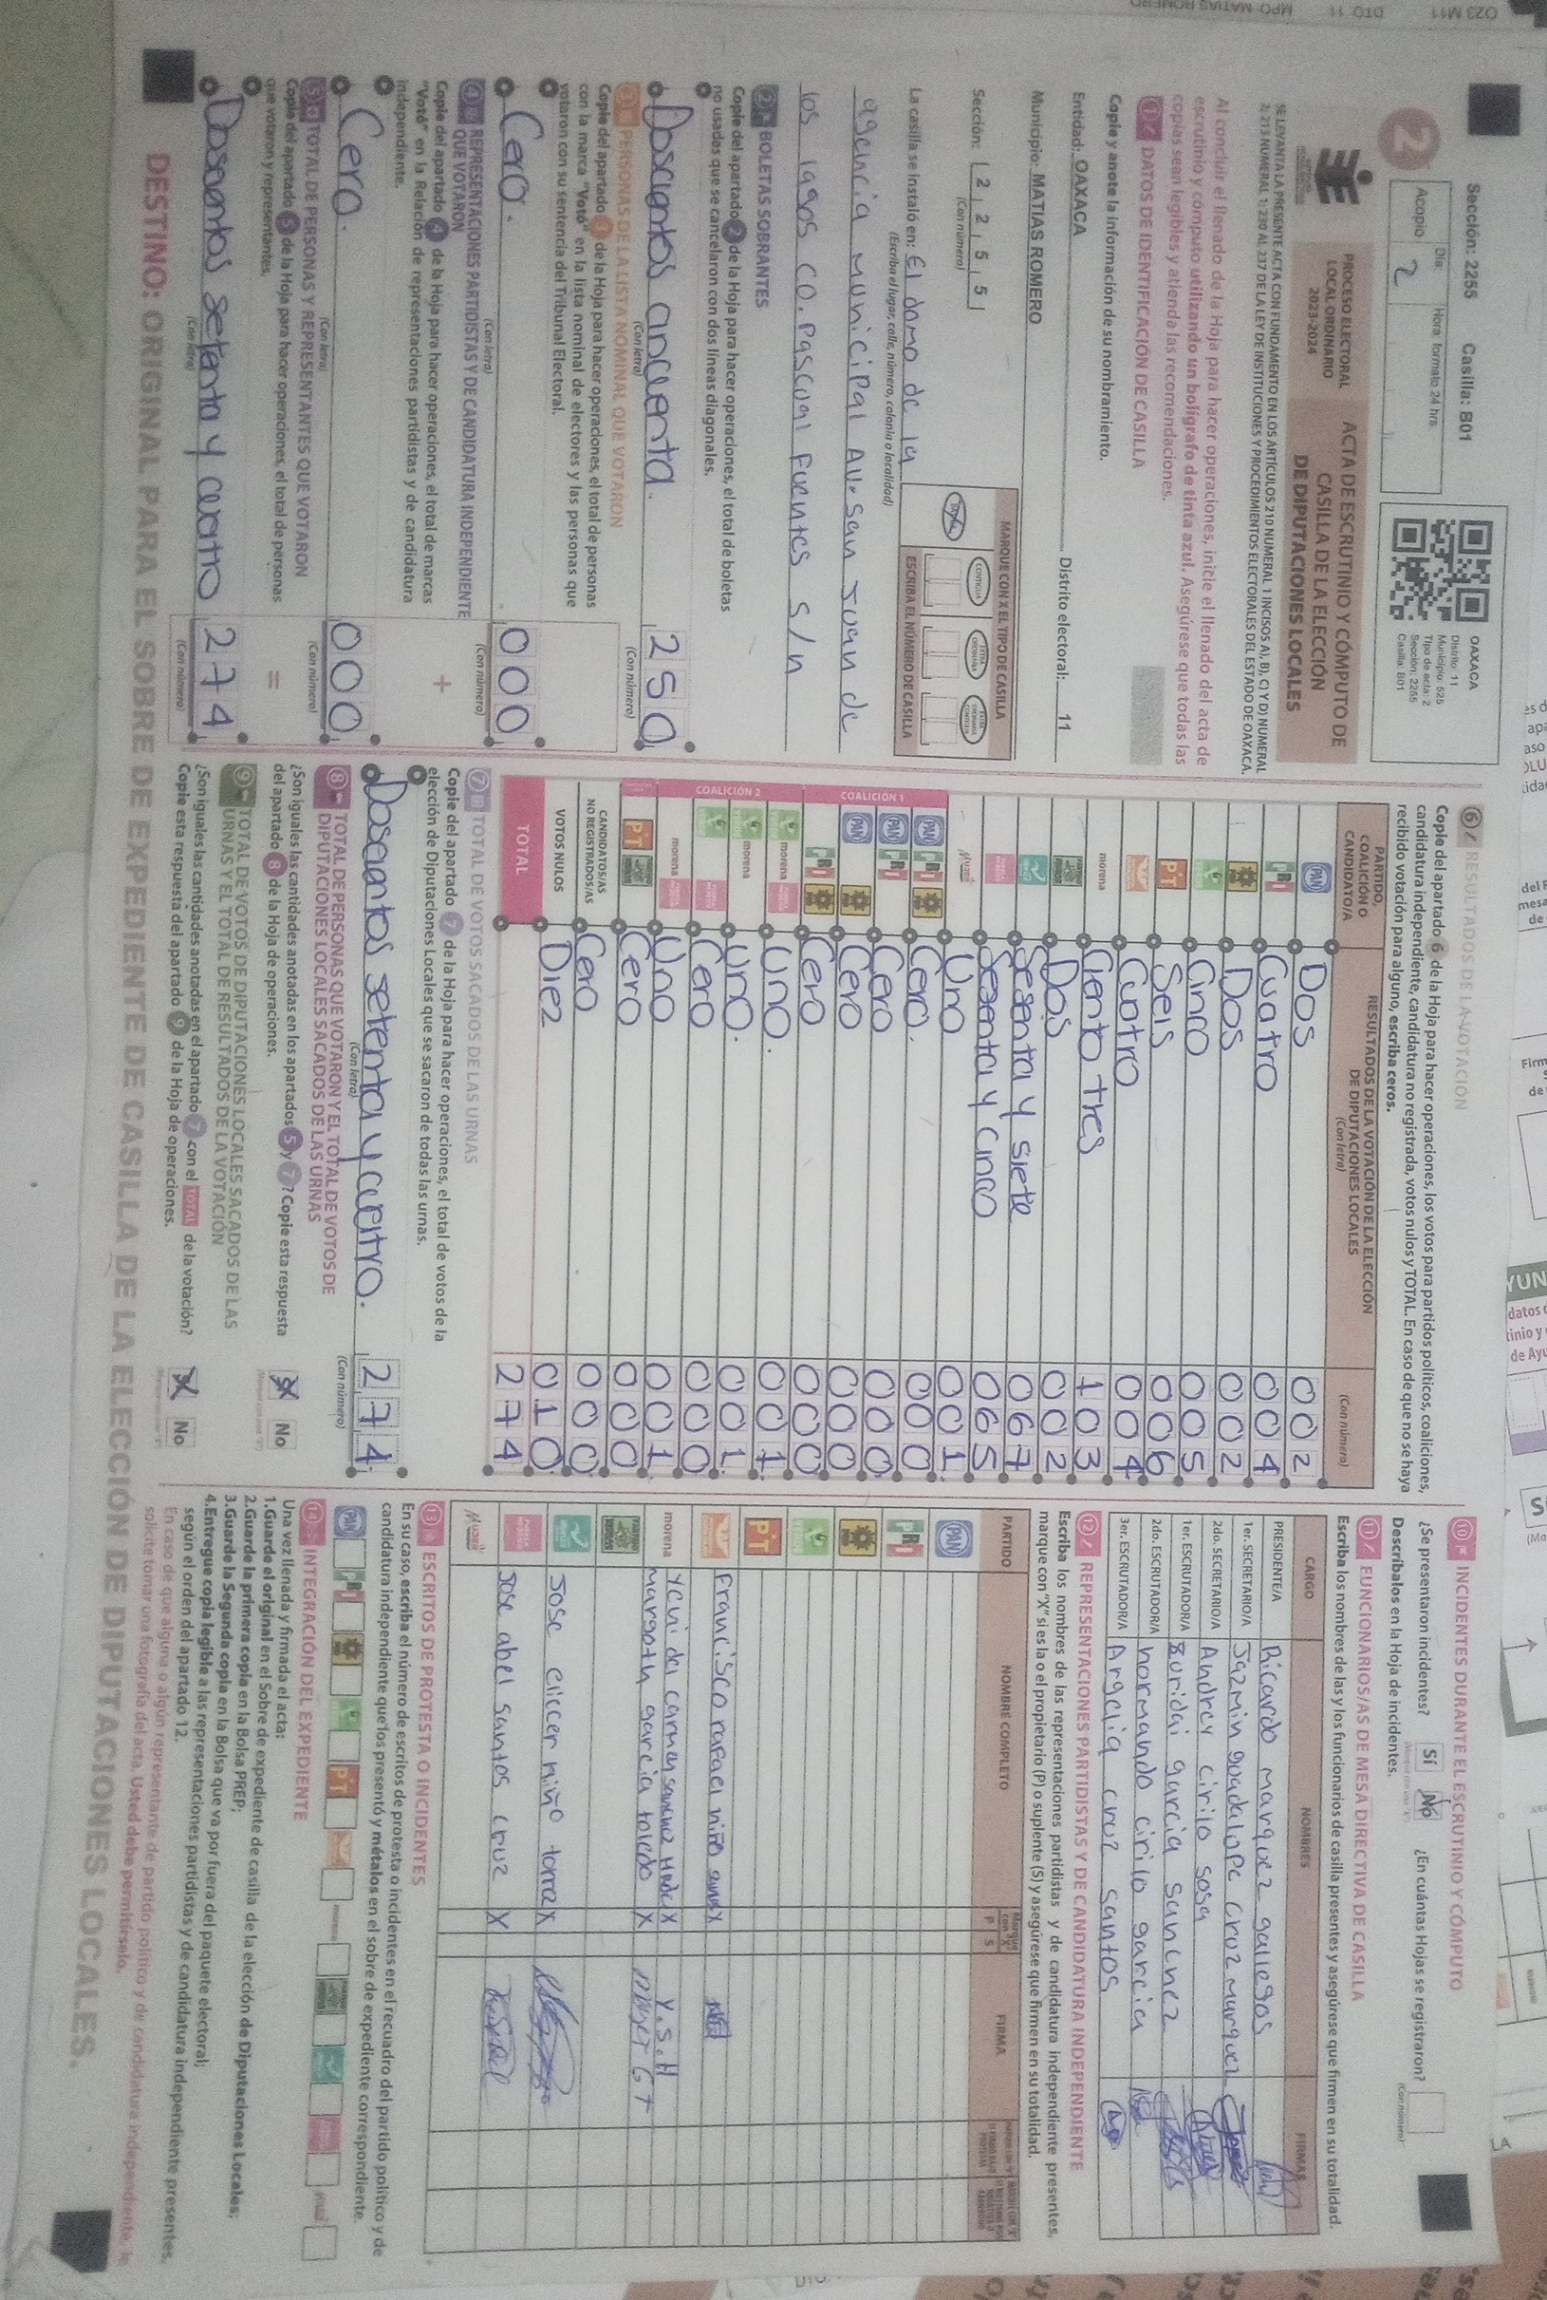 Sección: 2255 Casilla: B01
Día: Hora: formato 24 hrs.
Acopio 2
2
OAXACA
Distrito: 11
Municipio: 525
Tipo de acta: 2
Sección: 2255
Casilla: B01
PROCESO ELECTORAL
LOCAL ORDINARIO
2023-2024
ACTA DE ESCRUTINIO Y CÓMPUTO DE
CASILLA DE LA ELECCIÓN
DE DIPUTACIONES LOCALES
SE LEVANTA LA PRESENTE ACTA CON FUNDAMENTO EN LOS ARTÍCULOS 210 NUMERAL 1 INCISOS A), B), C) Y D) NUMERAL
2; 213 NUMERAL 1; 230 AL 237 DE LA LEY DE INSTITUCIONES Y PROCEDIMIENTOS ELECTORALES DEL ESTADO DE OAXACA.
Al concluir el llenado de la Hoja para hacer operaciones, inicie el llenado del acta de
escrutinio y cómputo utilizando un bolígrafo de tinta azul. Asegúrese que todas las
copias sean legibles y atienda las recomendaciones.
1 DATOS DE IDENTIFICACIÓN DE CASILLA
Copie y anote la información de su nombramiento.
Entidad: OAXACA Distrito electoral: 11
Municipio: MATIAS ROMERO
Sección: 2 2 5 5
(Con número)
MARQUE CON X EL TIPO DE CASILLA
ESCRIBA EL NÚMERO DE CASILLA
La casilla se instaló en: El domo de la
(Escriba el lugar, calle, número, colonia o localidad)
agencia municipal Av. San Juan de
los lagos co. Pascual Fuentes s/n
2 BOLETAS SOBRANTES
Copie del apartado 2 de la Hoja para hacer operaciones, el total de boletas
no usadas que se cancelaron con dos líneas diagonales.
Doscientos cincuenta. 250
(Con letra) (Con número)
3 PERSONAS DE LA LISTA NOMINAL QUE VOTARON
Copie del apartado 3 de la Hoja para hacer operaciones, el total de personas
con la marca "Votó" en la lista nominal de electores y las personas que
votaron con su sentencia del Tribunal Electoral.
Cero. 000
(Con letra) (Con número)
4 REPRESENTACIONES PARTIDISTAS Y DE CANDIDATURA INDEPENDIENTE
QUE VOTARON
Copie del apartado 4 de la Hoja para hacer operaciones, el total de marcas
"Votó" en la Relación de representaciones partidistas y de candidatura
independiente. +
Cero. 000
(Con letra) (Con número)
5 TOTAL DE PERSONAS Y REPRESENTANTES QUE VOTARON
Copie del apartado 5 de la Hoja para hacer operaciones, el total de personas
que votaron y representantes. =
Doscientos setenta y cuatro 274
(Con letra) (Con número)
6 RESULTADOS DE LA VOTACIÓN
Copie del apartado 6 de la Hoja para hacer operaciones, los votos para partidos políticos, coaliciones,
candidatura independiente, candidatura no registrada, votos nulos y TOTAL. En caso de que no se haya
recibido votación para alguno, escriba ceros.
PARTIDO,
COALICIÓN O
CANDIDATO/A
RESULTADOS DE LA VOTACIÓN DE LA ELECCIÓN
DE DIPUTACIONES LOCALES
(Con letra)
(Con número)
PAN Dos 002
PRI Cuatro 004
Dos 002
Cinco 005
PT Seis 006
Cuatro 004
morena Ciento tres 103
Dos 002
Sesenta y siete 067
Sesenta y cinco 065
Mujer Uno 001
COALICIÓN 1
PAN PRI Cero. 000
PAN PRI Cero 000
PAN Cero 000
PRI Cero 000
COALICIÓN 2
morena Uno. 001
morena Uno. 001
Cero 000
morena Uno 001
PT Cero 000
CANDIDATOS/AS
NO REGISTRADOS/AS Cero 000
VOTOS NULOS Diez 010
TOTAL 274
7 TOTAL DE VOTOS SACADOS DE LAS URNAS
Copie del apartado 7 de la Hoja para hacer operaciones, el total de votos de la
elección de Diputaciones Locales que se sacaron de todas las urnas.
Doscientos setenta y cuatro. 274
(Con letra) (Con número)
8 TOTAL DE PERSONAS QUE VOTARON Y EL TOTAL DE VOTOS DE
DIPUTACIONES LOCALES SACADOS DE LAS URNAS
¿Son iguales las cantidades anotadas en los apartados 5 y 7? Copie esta respuesta
del apartado 8 de la Hoja de operaciones. Sí No
9 TOTAL DE VOTOS DE DIPUTACIONES LOCALES SACADOS DE LAS
URNAS Y EL TOTAL DE RESULTADOS DE LA VOTACIÓN
¿Son iguales las cantidades anotadas en el apartado 7 con el TOTAL de la votación?
Copie esta respuesta del apartado 9 de la Hoja de operaciones. Sí No
10 INCIDENTES DURANTE EL ESCRUTINIO Y CÓMPUTO
¿Se presentaron incidentes? Sí No ¿En cuántas Hojas se registraron?
(Con número)
Descríbalos en la Hoja de incidentes.
11 FUNCIONARIOS/AS DE MESA DIRECTIVA DE CASILLA
Escriba los nombres de las y los funcionarios de casilla presentes y asegúrese que firmen en su totalidad.
CARGO NOMBRES FIRMAS
PRESIDENTE/A Ricardo marquez gallegos
1er. SECRETARIO/A Jazmin guadalope cruz marquez
2do. SECRETARIO/A Andrey cirilo sosa
1er. ESCRUTADOR/A Zuridai garcia sanchez
2do. ESCRUTADOR/A normando cirilo garcia
3er. ESCRUTADOR/A Argelia cruz santos
12 REPRESENTACIONES PARTIDISTAS Y DE CANDIDATURA INDEPENDIENTE
Escriba los nombres de las representaciones partidistas y de candidatura independiente presentes,
marque con "X" si es la o el propietario (P) o suplente (S) y asegúrese que firmen en su totalidad.
PARTIDO NOMBRE COMPLETO Marque con "X" P S FIRMA
PAN
PRI
PT
Francisco rafael niño X
morena Ychi del carmen sanchez X Y.S.H
margoth garcia toledo X
Jose eliecer niño torres X
Jose abel santos cruz X
Mujer
13 ESCRITOS DE PROTESTA O INCIDENTES
En su caso, escriba el número de escritos de protesta o incidentes en el recuadro del partido político y de
candidatura independiente que los presentó y métalos en el sobre de expediente correspondiente.
PAN PRI PT morena
14 INTEGRACIÓN DEL EXPEDIENTE
Una vez llenada y firmada el acta:
1.Guarde el original en el Sobre de expediente de casilla de la elección de Diputaciones Locales;
2.Guarde la primera copia en la Bolsa PREP;
3.Guarde la Segunda copia en la Bolsa que va por fuera del paquete electoral;
4.Entregue copia legible a las representaciones partidistas y de candidatura independiente presentes,
según el orden del apartado 12.
En caso de que alguna o algún representante de partido político y de candidatura independiente, le
solicite tomar una fotografía del acta, Usted debe permitírselo.
DESTINO: ORIGINAL PARA EL SOBRE DE EXPEDIENTE DE CASILLA DE LA ELECCIÓN DE DIPUTACIONES LOCALES.